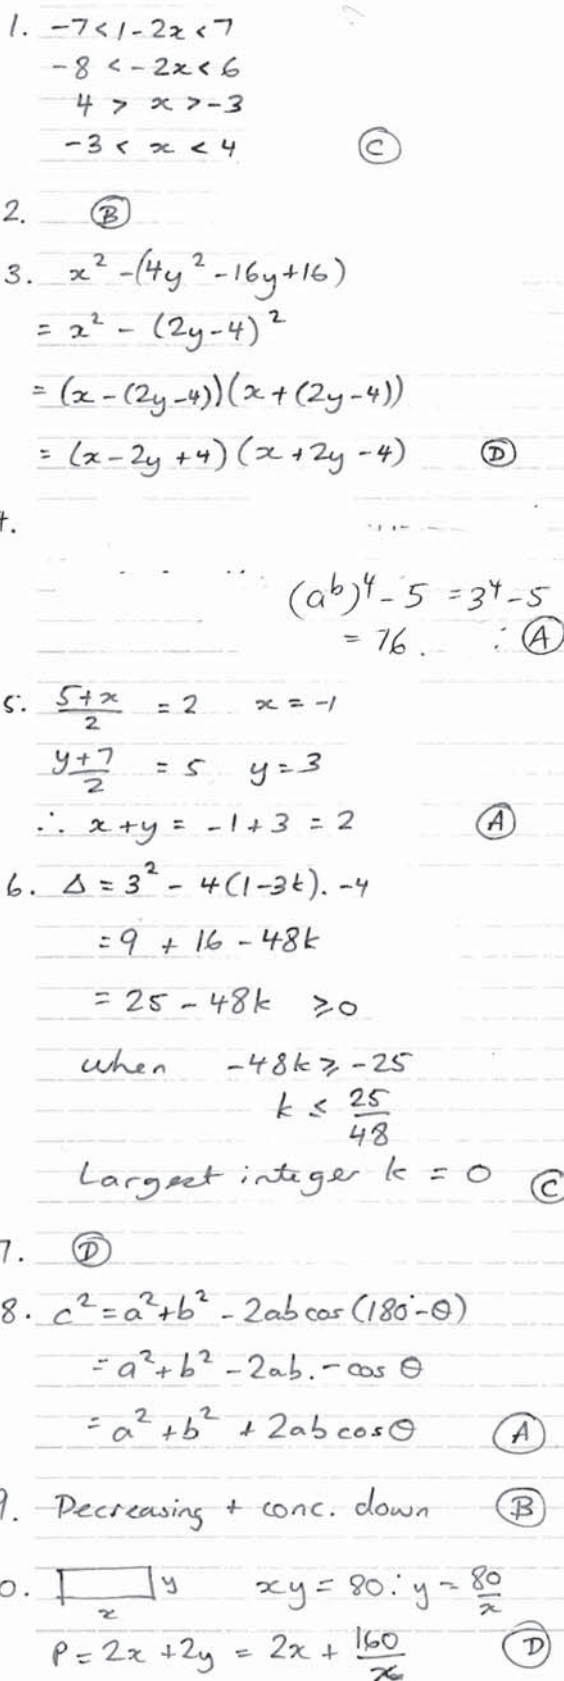 1. -7 < 1 - 2x < 7
-8 < -2x < 6
4 > x > -3
-3 < x < 4 C
2. B
3. x² - (4y² - 16y + 16)
= x² - (2y-4)²
= (x - (2y-4))(x + (2y-4))
= (x - 2y + 4)(x + 2y - 4) D
4.
(a^b)^4 - 5 = 3^4 - 5
= 76. ∴ A
5. (5+x)/2 = 2 x = -1
(y+7)/2 = 5 y = 3
∴ x+y = -1+3 = 2 A
6. Δ = 3² - 4(1-3k). -4
= 9 + 16 - 48k
= 25 - 48k ≥ 0
when -48k ≥ -25
k ≤ 25/48
Largest integer k = 0 C
7. D
8. c² = a²+b² - 2ab cos (180°-θ)
= a²+b² - 2ab. -cos θ
= a²+b² + 2ab cos θ A
9. Decreasing + conc. down B
0. y xy = 80 ∴ y = 80/x
x
P = 2x + 2y = 2x + 160/x D